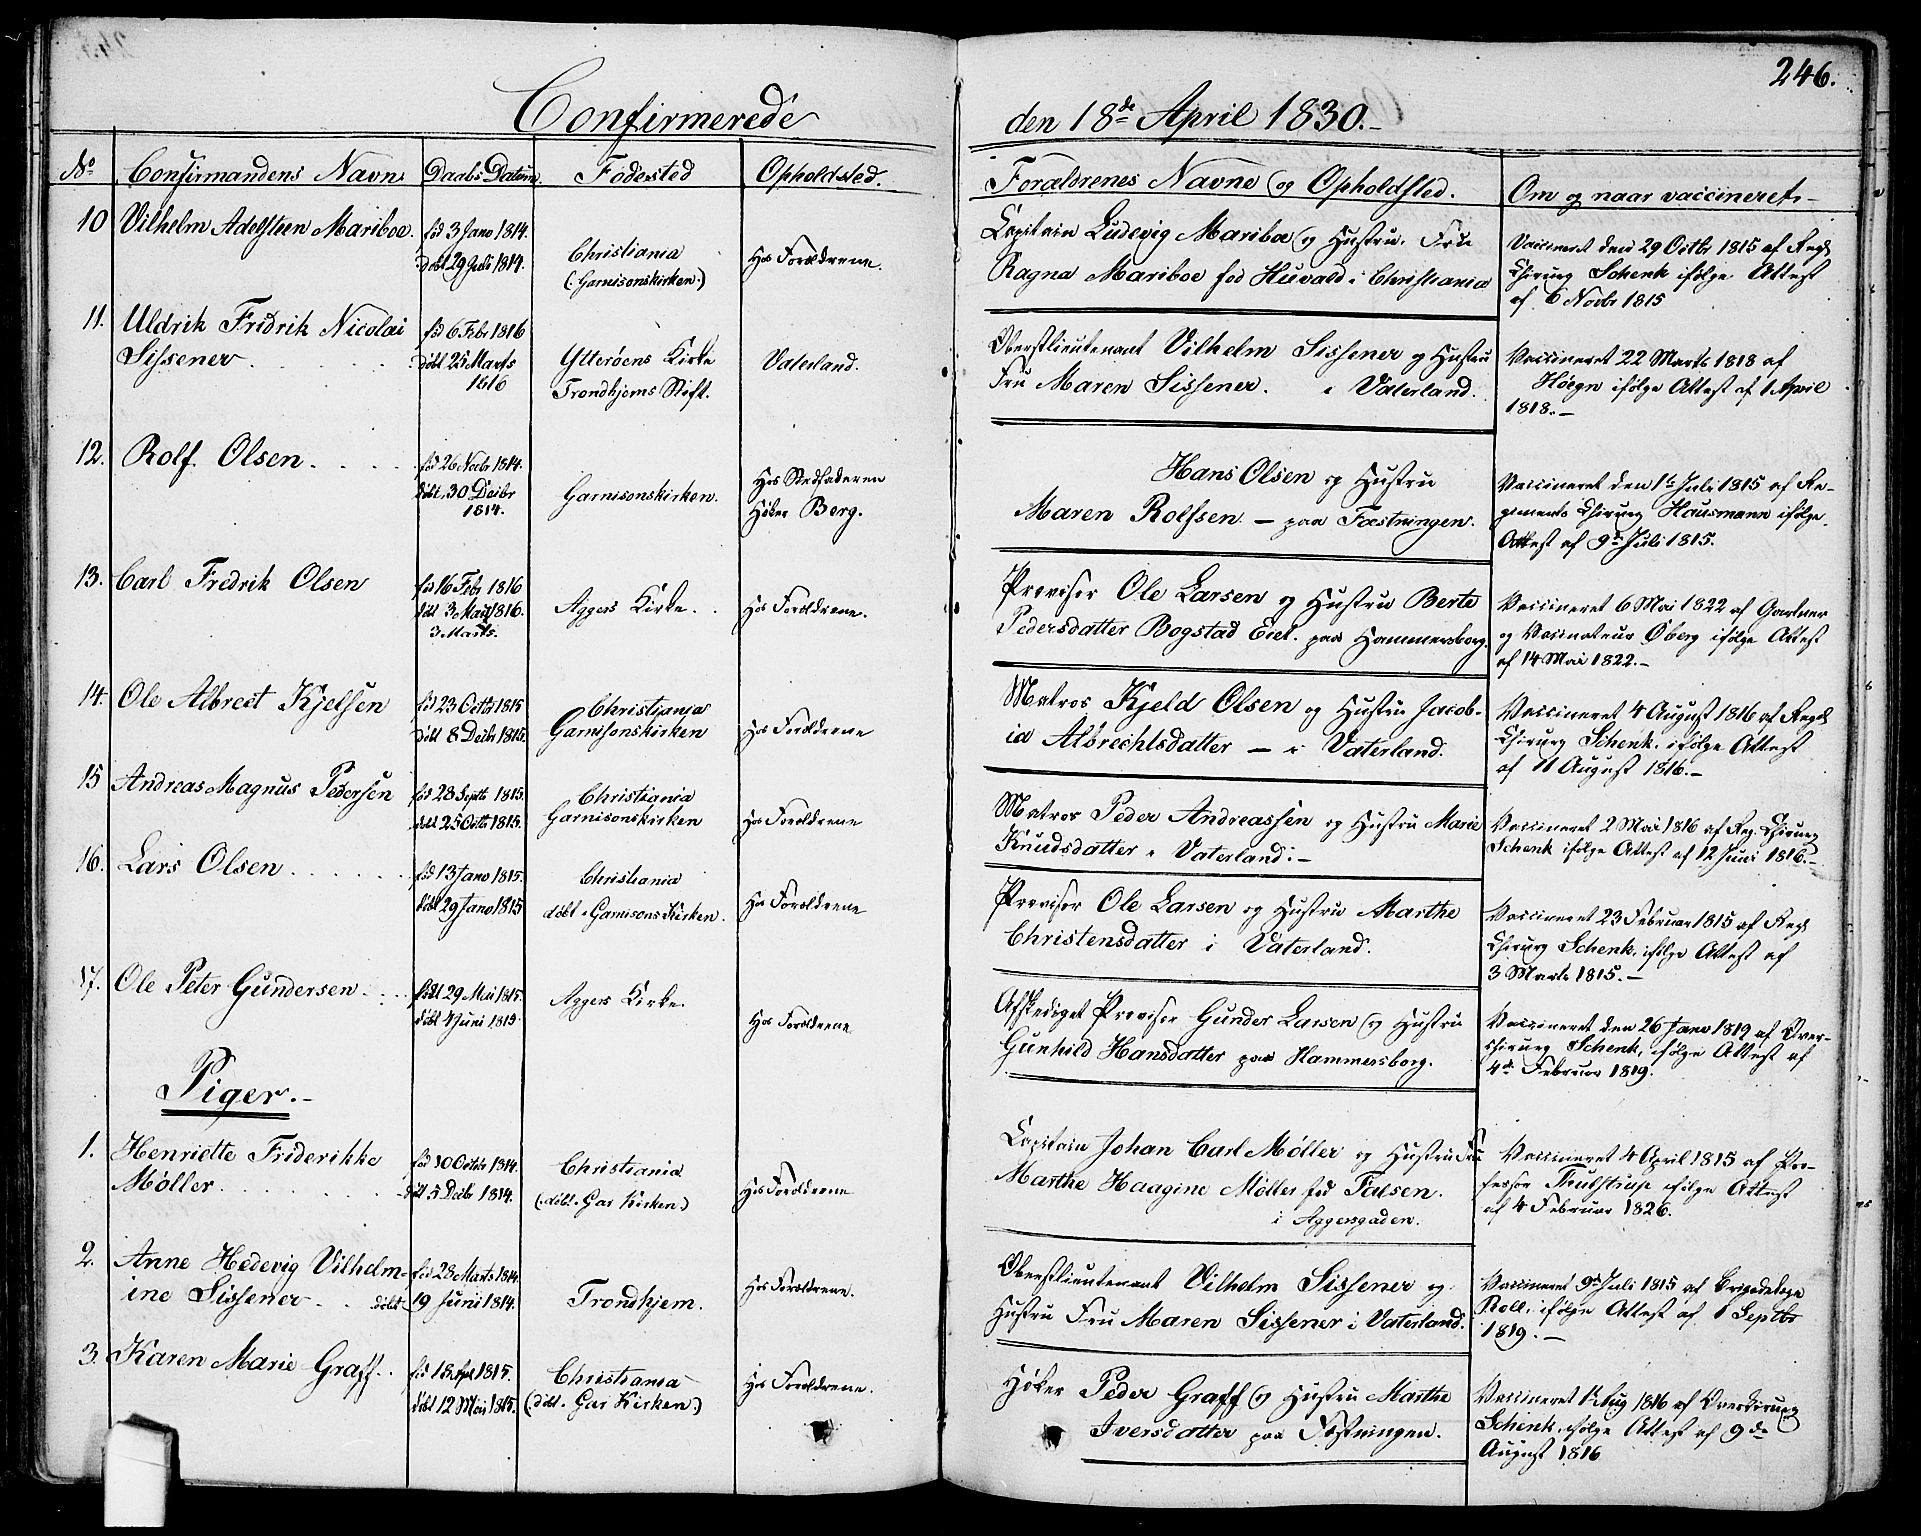 246.
Confirmerede den 18de April 1830.-
No Confirmandens Navn Daabs Datum Fødested Opholdsted. Forældrenes Navne og Opholdsted. Om og naar vaccineret.-
10 Vilhelm Adelsteen Mariboe.
fød 3 Jano 1814.
døbt 29 Juli 1814.
Christiania
(:Garnisonskirken:)
Hos Forældrene.
Capitain Ludevig Mariboe og Hustru, Frue
Ragna Mariboe fød Huvald i Christiania
Vaccineret den 29 Octbr 1815 af Regts
Chirurg Schenk ifølge Attest
af 6 Novbr 1815
11. Uldrik Fridrik Nicolai
Sissener
fød 6 Febr 1816
døbt 25 Marts
1816
Ytterøens Kirke
Trondhjems Stift.
Vaterland.
Oberstlieutenant Vilhelm Sissener og Hustru
Fru Maren Sissener. i Vaterland.
Vaccineret 22 Marts 1818 af
Høegn ifølge Attest af 1 April
1818.-
12. Rolf Olsen
fød 26 Novbr 1814.
døbt 30 Decbr
1814.
Garnisonskirken.
Hos Stedfaderen
Høker Berg.
Hans Olsen og Hustru
Maren Rolfsen - paa Fæstningen.
Vaccineret den 1te Juli 1815 af Re-
gements Chirurg Hausmann ifølge
Attest af 9de Juli 1815.
13. Carl Fredrik Olsen
fød 16 Febr 1816
døbt 3 Mai 1816.
3 Marts.
Aggers Kirke.
Hos Forældrene.
Provisor Ole Larsen og Hustru Berte
Pedersdatter Bogstad Eiet. paa Hammersborg.
Vaccineret 6 Mai 1822 af Gartner
og Vaccinateur Øberg ifølge Attest
af 14 Mai 1822.-
14. Ole Albrect Kjelsen
fød 23 Octbr 1815
døbt 8 Decbr 1815.
Christiania
Garnisonskirken
Hos Forældrene
Matros Kjeld Olsen og Hustru Jacob-
ia Albrechtsdatter - i Vaterland.
Vaccineret 4 August 1816 af Regts
Chirurg Schenk, ifølge Attest
af 11 August 1816.-
15 Andreas Magnus Pedersen
fød 28 Septbr 1815.
døbt 25 Octbr 1815.
Christiania
Garnisonskirken
Hos Forældrene
Matros Peder Andreassen og Hustru Marie
Knudsdatter i Vaterland.-
Vaccineret 2 Mai 1816 af Reg. Chirurg
Schenk ifølge Attest af 12 Juni 1816.-
16. Lars Olsen
fød 13 Jano 1815.
døbt 29 Jano 1815
Christiania
døbt i Garnisons Kirken.
Hos Forældrene
Provisor Ole Larsen og Hustru Marthe
Christensdatter i Vaterland.
Vaccineret 23 Februar 1815 af Regts
Chirurg Schenk, ifølge Attest af
3 Marts 1815.-
17. Ole Peter Gundersen
født 29 Mai 1815.
døbt 4 Juni 1815.
Aggers Kirke.
Hos Forældrene
Afskediget Provisor Gunder Larsen og Hustru
Gunhild Hansdatter paa Hammersborg.
Vaccineret den 26 Jano 1819 af Over-
chirurg Schenk, ifølge Attest af
4de Februar 1819.
Piger.-
1. Henriette Friderikke
Møller
fød 10 Octbr 1814.
døbt 5 Decbr 1814.
Christiania
(:døbt i Gar Kirken:)
Hos Forældrene
Capitain Johan Carl Møller og Hustru Fru
Marthe Haagine Møller fød Falsen.
i Aggersgaden.
Vaccineret 4 April 1815 af Pro-
fessor Thulstrup ifølge Attest
af 4 Februar 1826.
2. Anne Hedevig Vilhelm-
ine Sissener
fød 28 Marts 1814
døbt 19 Juni 1814.
Trondhjem.
Hos Forældrene.
Oberstlieutenant Vilhelm Sissener og
Hustru Fru Maren Sissener i Vaterland.
Vaccineret 9de Juli 1815 af Brigadelæge
Roll, ifølge Attest af 1 Septbr
1819.-
3. Karen Marie Graff.
fød 18 Apl 1815.
døbt 12 Mai 1815.
Christiania
(døbt i Gar Kirken.)
Hos Forældrene.
Høker Peder Graff og Hustru Marthe
Iversdatter paa Fæstningen.
Vaccineret 1 Aug 1816 af Overchirurg
Schenk, ifølge Attest af 9de
August 1816